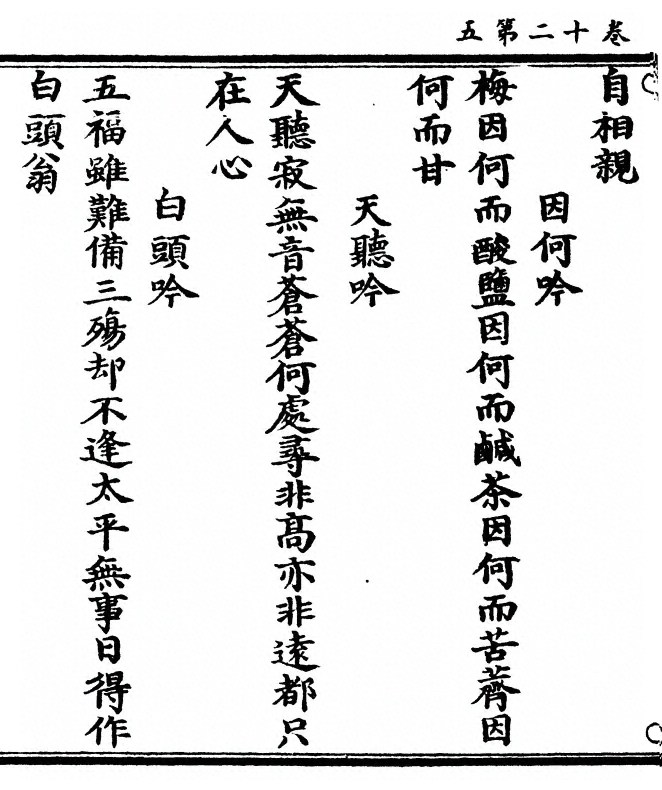 卷十二第五
自相親
因何吟
梅因何而酸鹽因何而鹹茶因何而苦薺因
何而甘
天聽吟
天聽寂無音蒼蒼何處尋非高亦非遠都只
在人心
白頭吟
五福雖難備三殤却不逢太平無事日得作
白頭翁